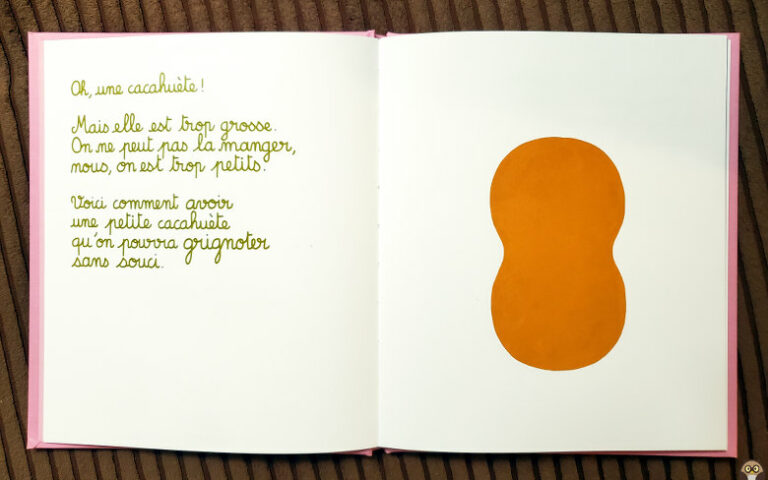 Oh, une cacahuète !
Mais elle est trop grosse.
On ne peut pas la manger,
nous, on est trop petits.
Voici comment avoir
une petite cacahuète
qu'on pourra grignoter
sans souci.